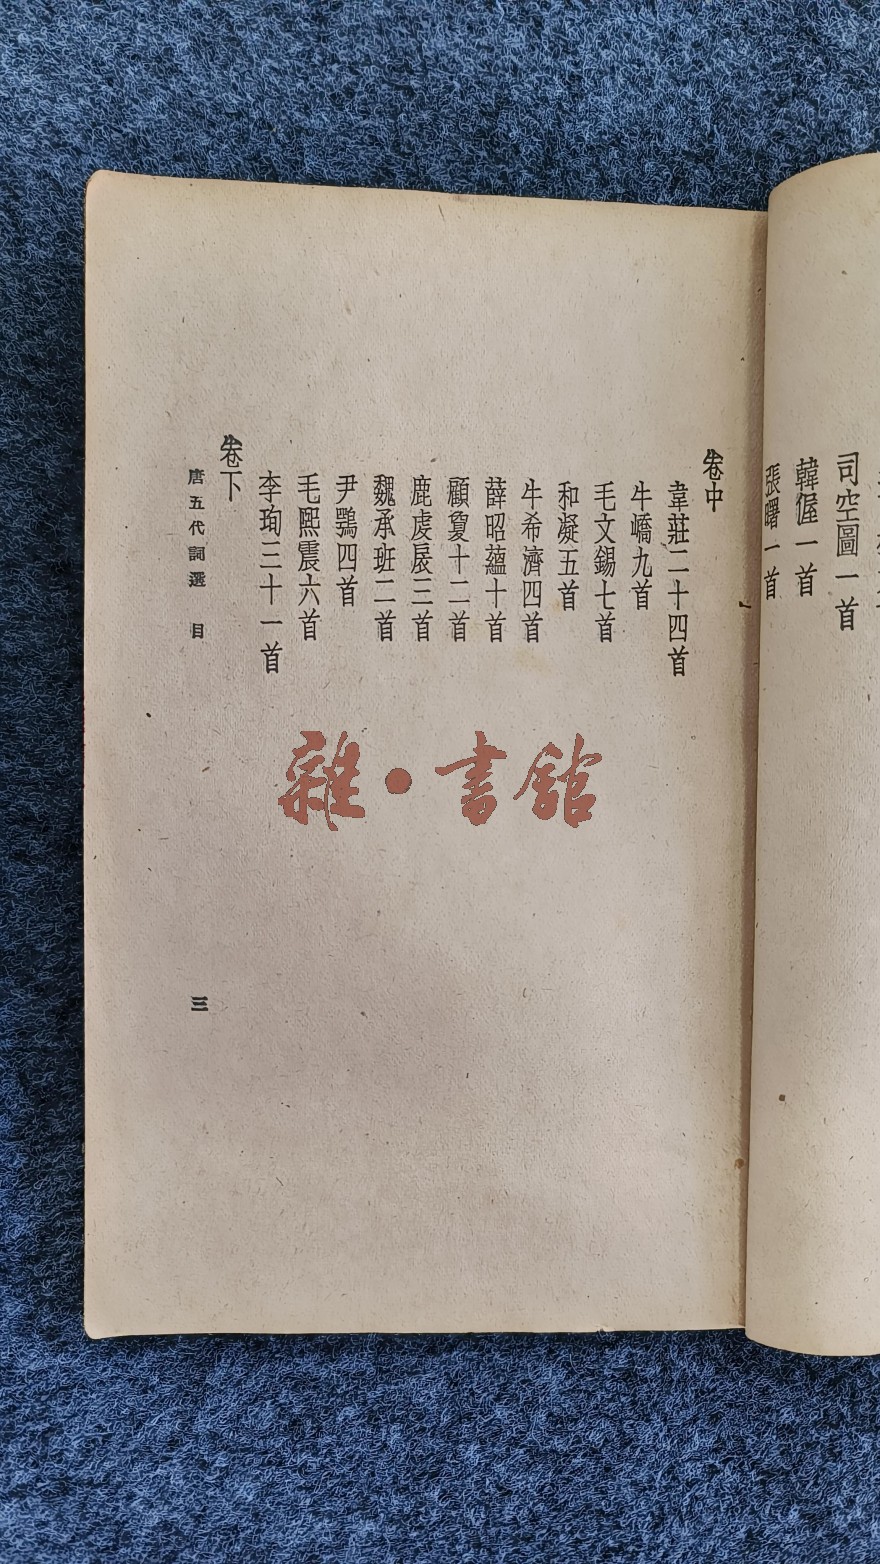 司空圖一首
韓偓一首
張曙一首
卷中
韋莊二十四首
牛嶠九首
毛文錫七首
和凝五首
牛希濟四首
薛昭蘊十首
顧敻十二首
鹿虔扆三首
魏承班二首
尹鶚四首
毛熙震六首
李珣三十一首
卷下
唐五代詞選 目
三
雜·書館